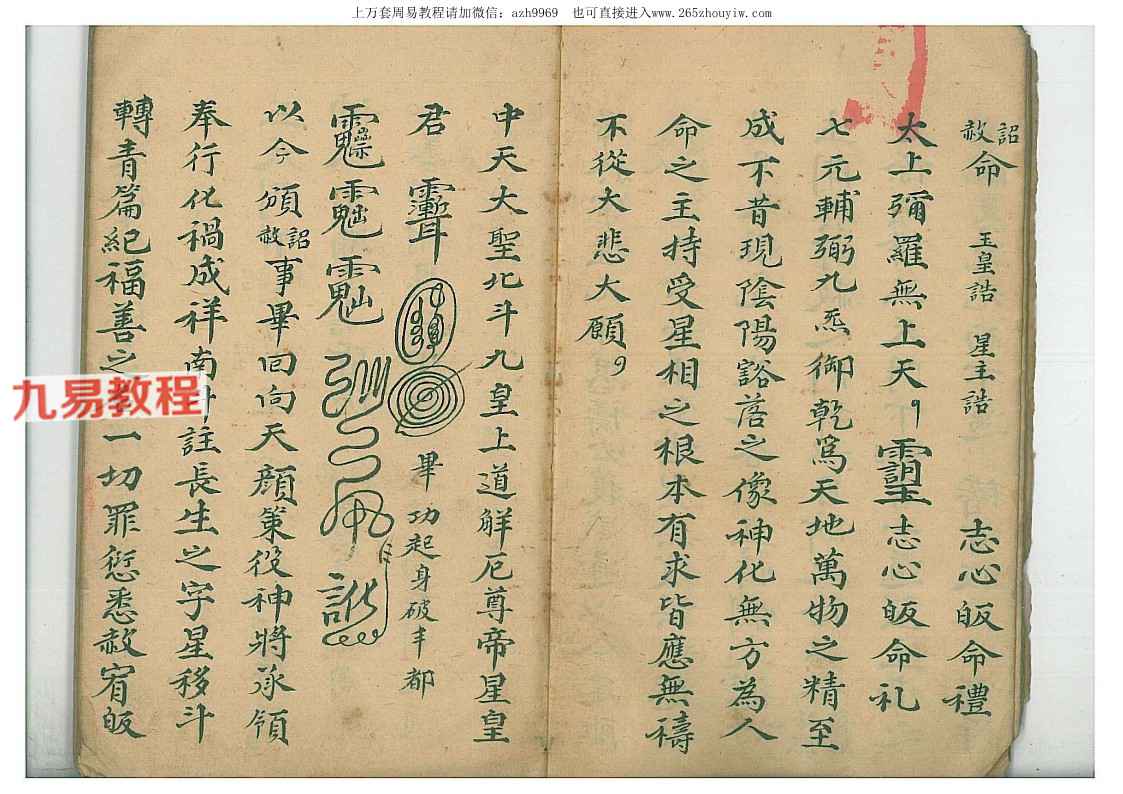 上万套周易教程请加微信：azh9969 也可直接进入www.265zhouyiw.com
詔赦命 玉皇誥 星主誥 志心皈命禮
太上彌羅無上天 志心皈命礼
七元輔弼九 炁御乾為天地萬物之精至
成不昔現陰陽豁落之像神化無方為人
命之主持受星相之根本有求皆應無禱
不從大悲大願
中天大聖北斗九皇上道解厄尊帝星皇
君 畢 功起身破丰都
以今頒詔赦事畢回向天顏策役神將承領
奉行化禍成祥南 註長生之字星移斗
轉青篇紀福善之 一切罪愆悉赦宥皈
九易教程